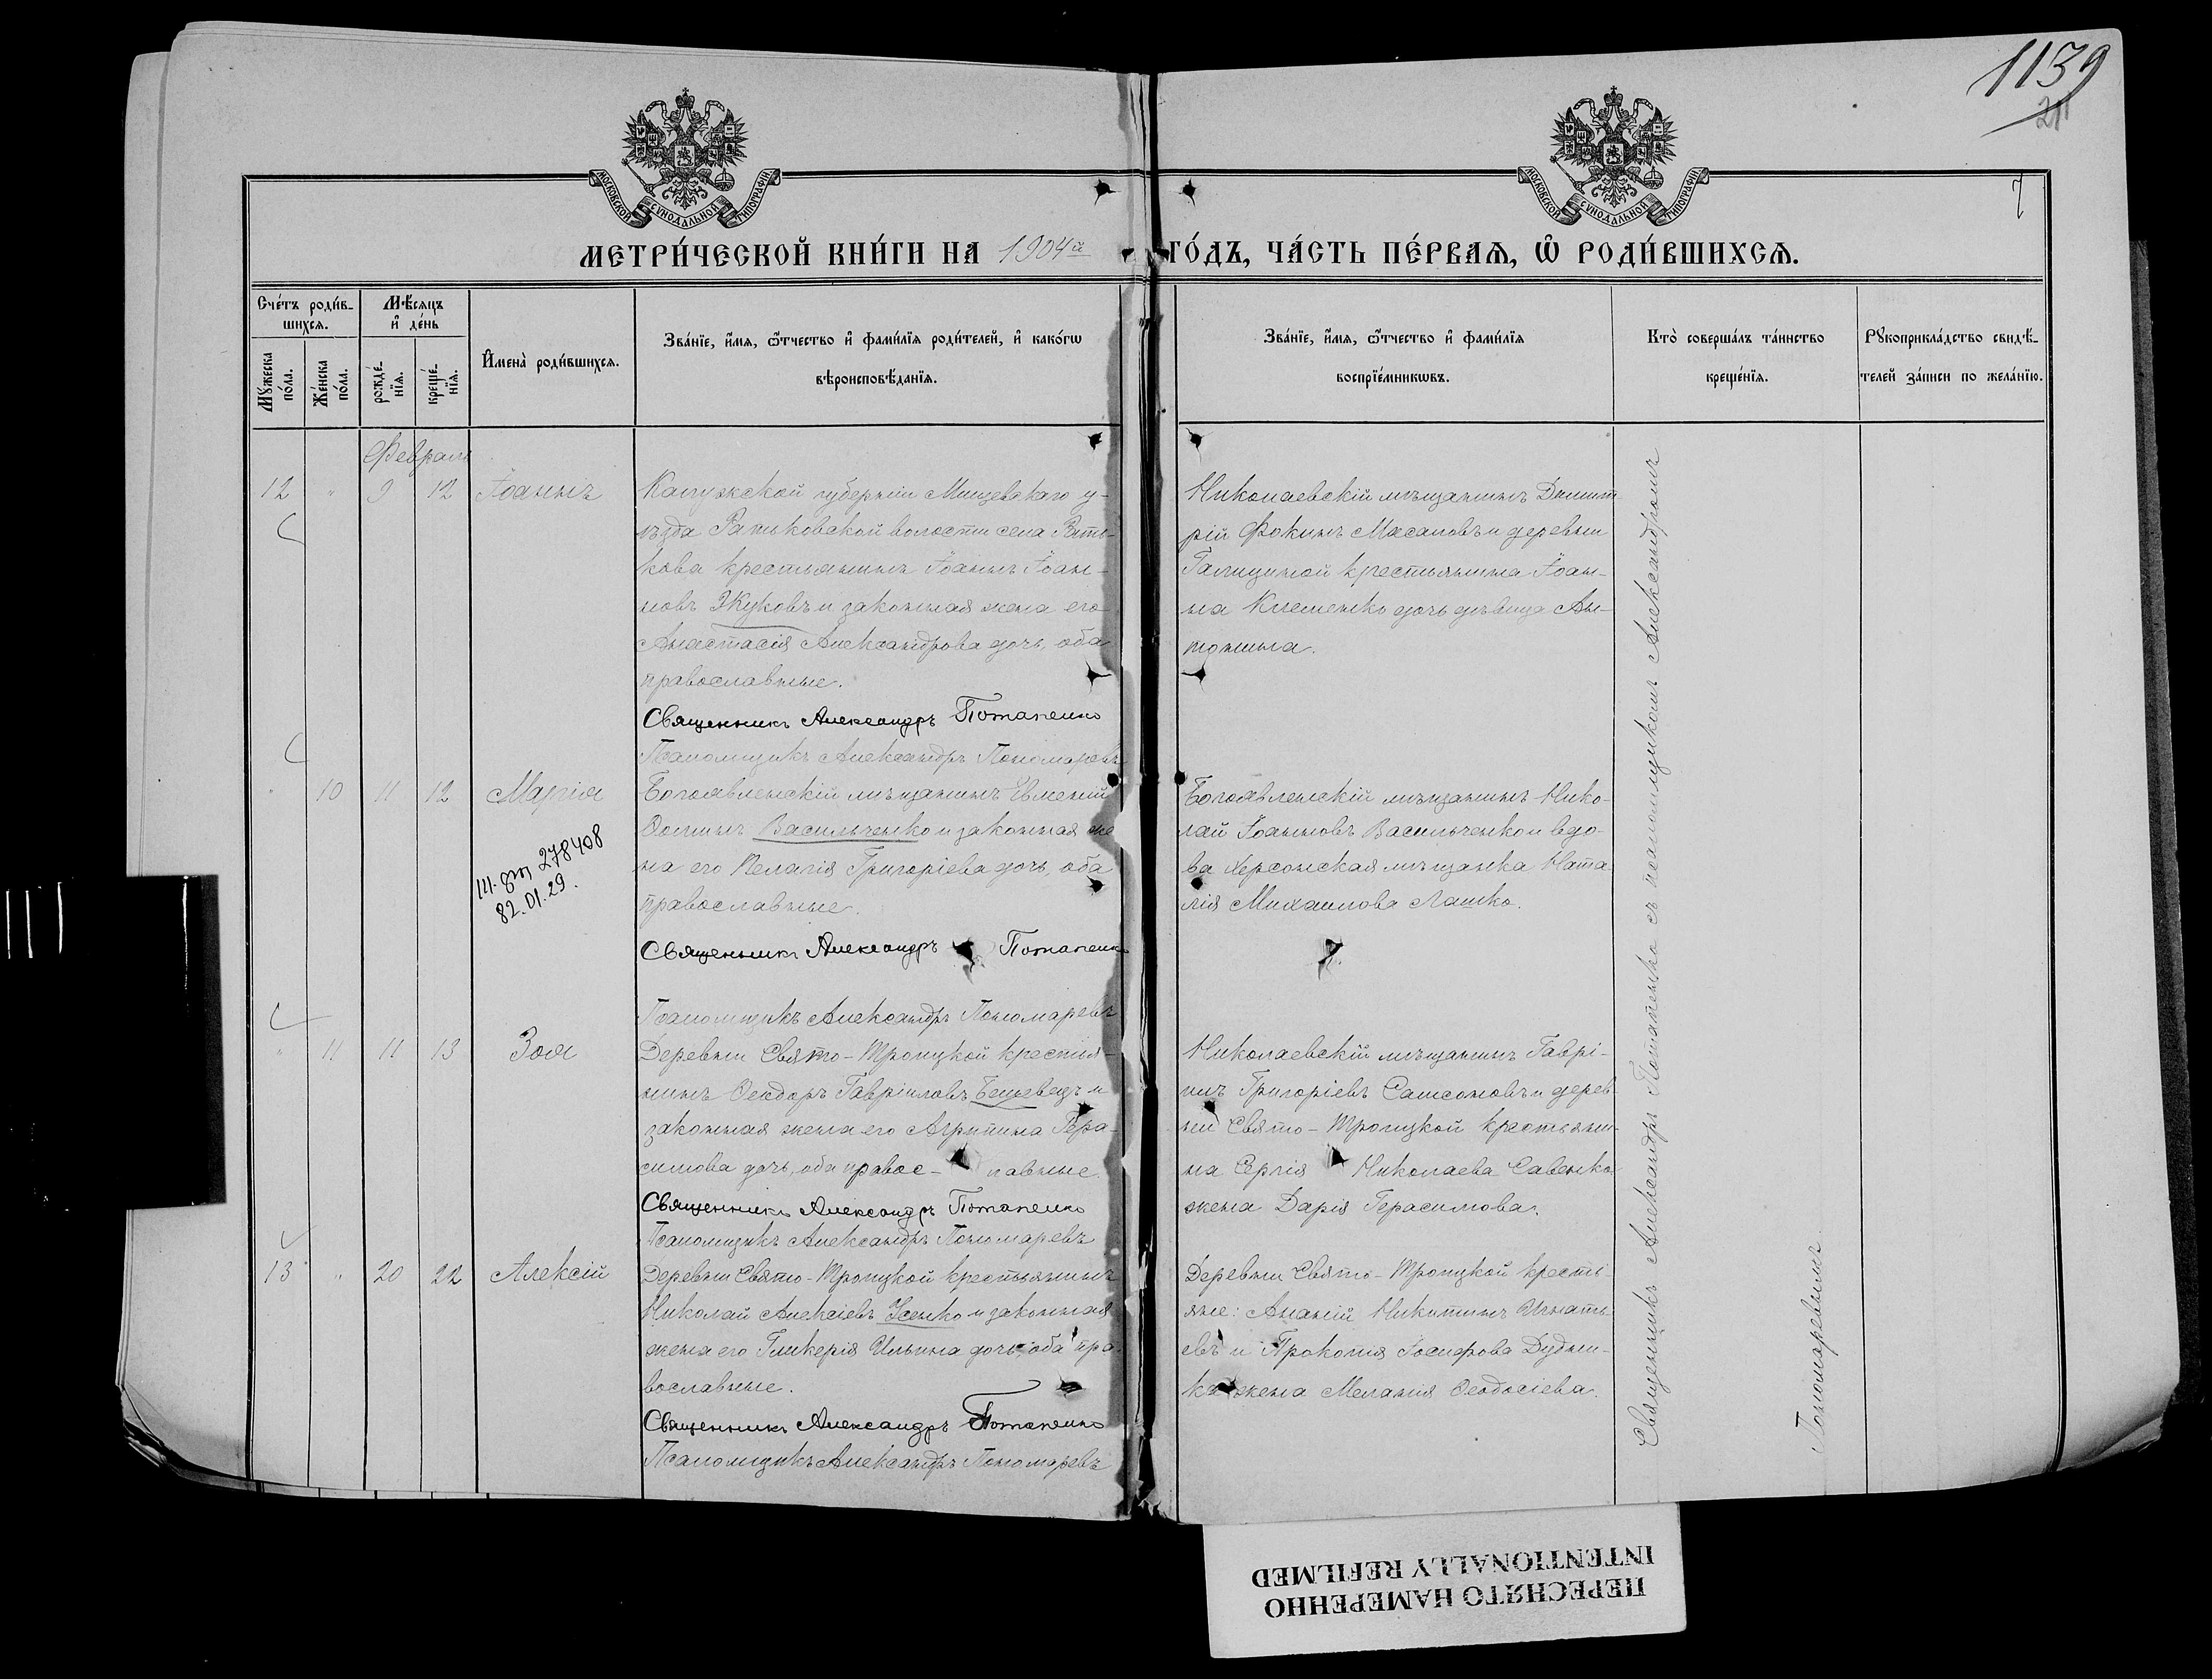 1139
211
МОСКОВСКОЙ СУНОДАЛЬНОЙ ТИПОГРАФІИ
МОСКОВСКОЙ СУНОДАЛЬНОЙ ТИПОГРАФІИ
7
МЕТРИ́ЧЕСКОЙ КНИ́ГИ НА 1904й ГО́ДЪ, ЧА́СТЬ ПЕ́РВАѦ, Ѡ҆ РОДИ́ВШИХСѦ.
Сче́тъ роди́в-
шихсѧ.
Мꙋжеска по́ла.
Же́нска по́ла.
Мѣ́сѧцъ
и҆ де́нь
рожде́-
нїѧ.
креще́-
нїѧ.
И҆мена̀ роди́вшихсѧ.
Зва́нїе, и҆́мѧ, ѻ҆́тчество и҆ фами́лїѧ роди́телей, и҆ како́гѡ
вѣроисповѣ́данїѧ.
Зва́нїе, и҆́мѧ, ѻ҆́тчество и҆ фами́лїѧ
воспрїе́мникѡвъ.
Кто̀ соверша́лъ та́инство
креще́нїѧ.
Рꙋкоприкла́дство свидѣ́-
телей за́писи по жела́нїю.
Февраль
12 " 9 12 Іоаннъ
Калужской губерніи Мищевскаго у-
ѣзда
волости села
кова крестьянинъ Іоаннъ Іоан-
новъ Жуковъ и законная жена его
Анастасія Александрова дочь, оба
православные.
Священникъ Александръ Потапенко
Псаломщикъ Александръ Пономаревъ
Николаевскій мѣщанинъ Димит-
рій Фокинъ и деревни
крестьянина Іоан-
на Клеменко дочь дѣвица Ан-
тонина.
" 10 11 12 Марія
278408
82.01.29.
Богоявленскій мѣщанинъ Евменій
Васильченко и законная же
на его Пелагія Григоріева дочь, оба
православные.
Священникъ Александръ Потапенко
Псаломщикъ Александръ Пономаревъ
Богоявленскій мѣщанинъ Нико-
лай Іоанновъ Васильченко и вдо-
ва Херсонская мѣщанка Ната
лія Михаилова Лашко.
" 11 11 13 Зоя
Деревни Свято-Троицкой крестья-
нинъ Ѳеодоръ Гавріиловъ и
законная жена его Агрипина Гера-
симова дочь, оба правос- лавные.
Священникъ Александръ Потапенко
Псаломщикъ Александръ Пономаревъ
Николаевскій мѣщанинъ Гаврі-
илъ Григоріевъ Самсоновъ и дерев-
ни Свято-Троицкой крестьяни-
на Сергія Николаева Савенко
жена Дарія Герасимова.
13 " 20 22 Алексій
Деревни Свято-Троицкой крестьянинъ
Николай Алексіевъ Усенко и законная
жена его Гликерія Ильина дочь, оба пра-
вославные.
Священникъ Александръ Потапенко
Псаломщикъ Александръ Пономаревъ
Деревни Свято-Троицкой кресть-
яне: Ананій Никитинъ Игнать-
евъ и Прокопія Іосифова Дудни-
ка жена Меланія Ѳеодосіева.
Священникъ Александръ Потапенко съ псаломщикомъ Александромъ
Пономаревымъ.
ПЕРЕСНЯТО НАМЕРЕННО
INTENTIONALLY REFILMED